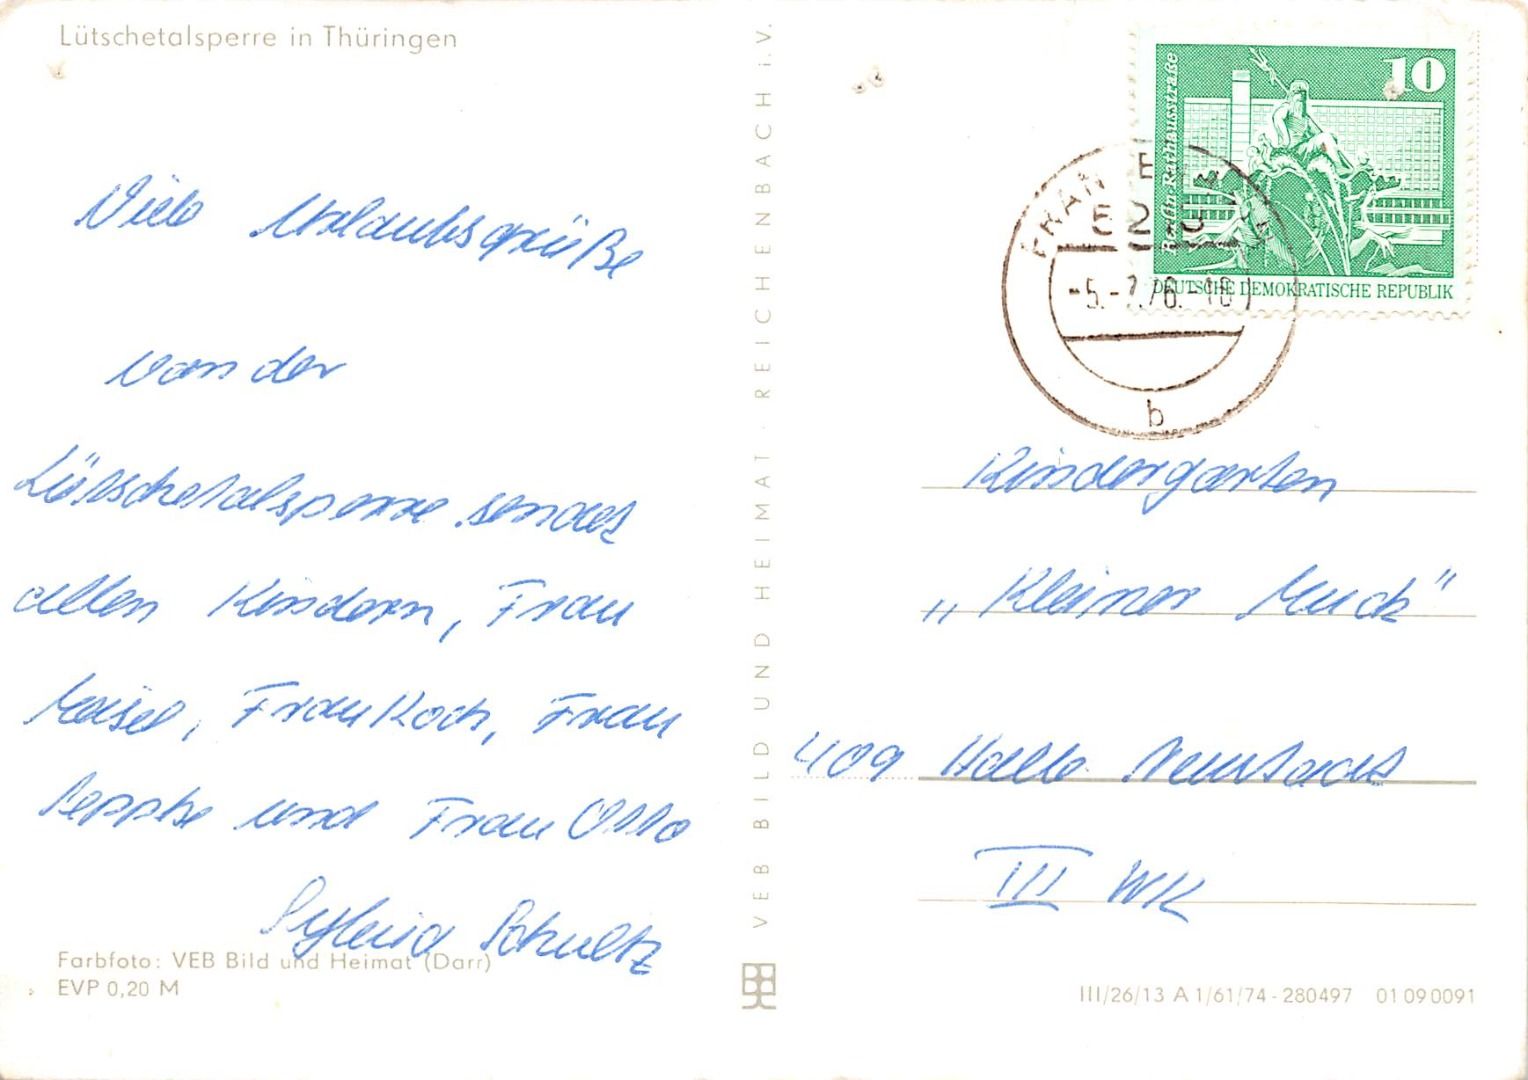 Lütschetalsperre in Thüringen
Viele Urlaubsgrüße
von der
Lütschetalsperre sendet
allen Kindern, Frau
Meisel, Frau Koch, Frau
und Frau Otto
Sylvia Schultz
Farbfoto: VEB Bild und Heimat (Darr)
EVP 0,20 M
VEB BILD UND HEIMAT REICHENBACH i.V.
10
Berlin-Rathausstraße
DEUTSCHE DEMOKRATISCHE REPUBLIK
b
Kindergarten
„Kleiner Muck"
409 Halle Neustadt
III WK
III/26/13 A 1/61/74-280497 01 09 0091